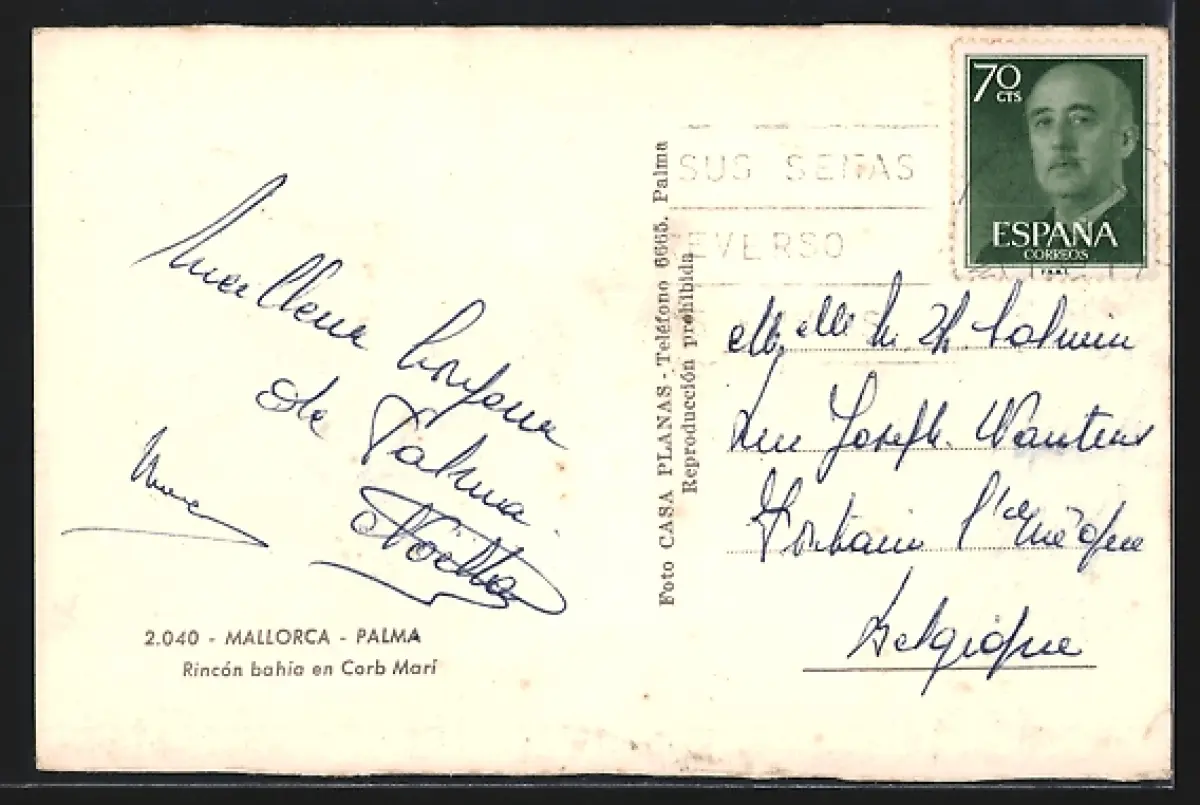 Meilleur bonjour
de Palma.
2.040 - MALLORCA - PALMA
Rincón bahia en Corb Marí
Foto CASA PLANAS - Teléfono 6665. Palma
Reproducción prohibida
SUS SEÑAS
EVERSO
70
CTS
ESPAÑA
CORREOS
F.N.M.T.
M. elle
Joseph Wauters
Fontaine l'Evêque
Belgique